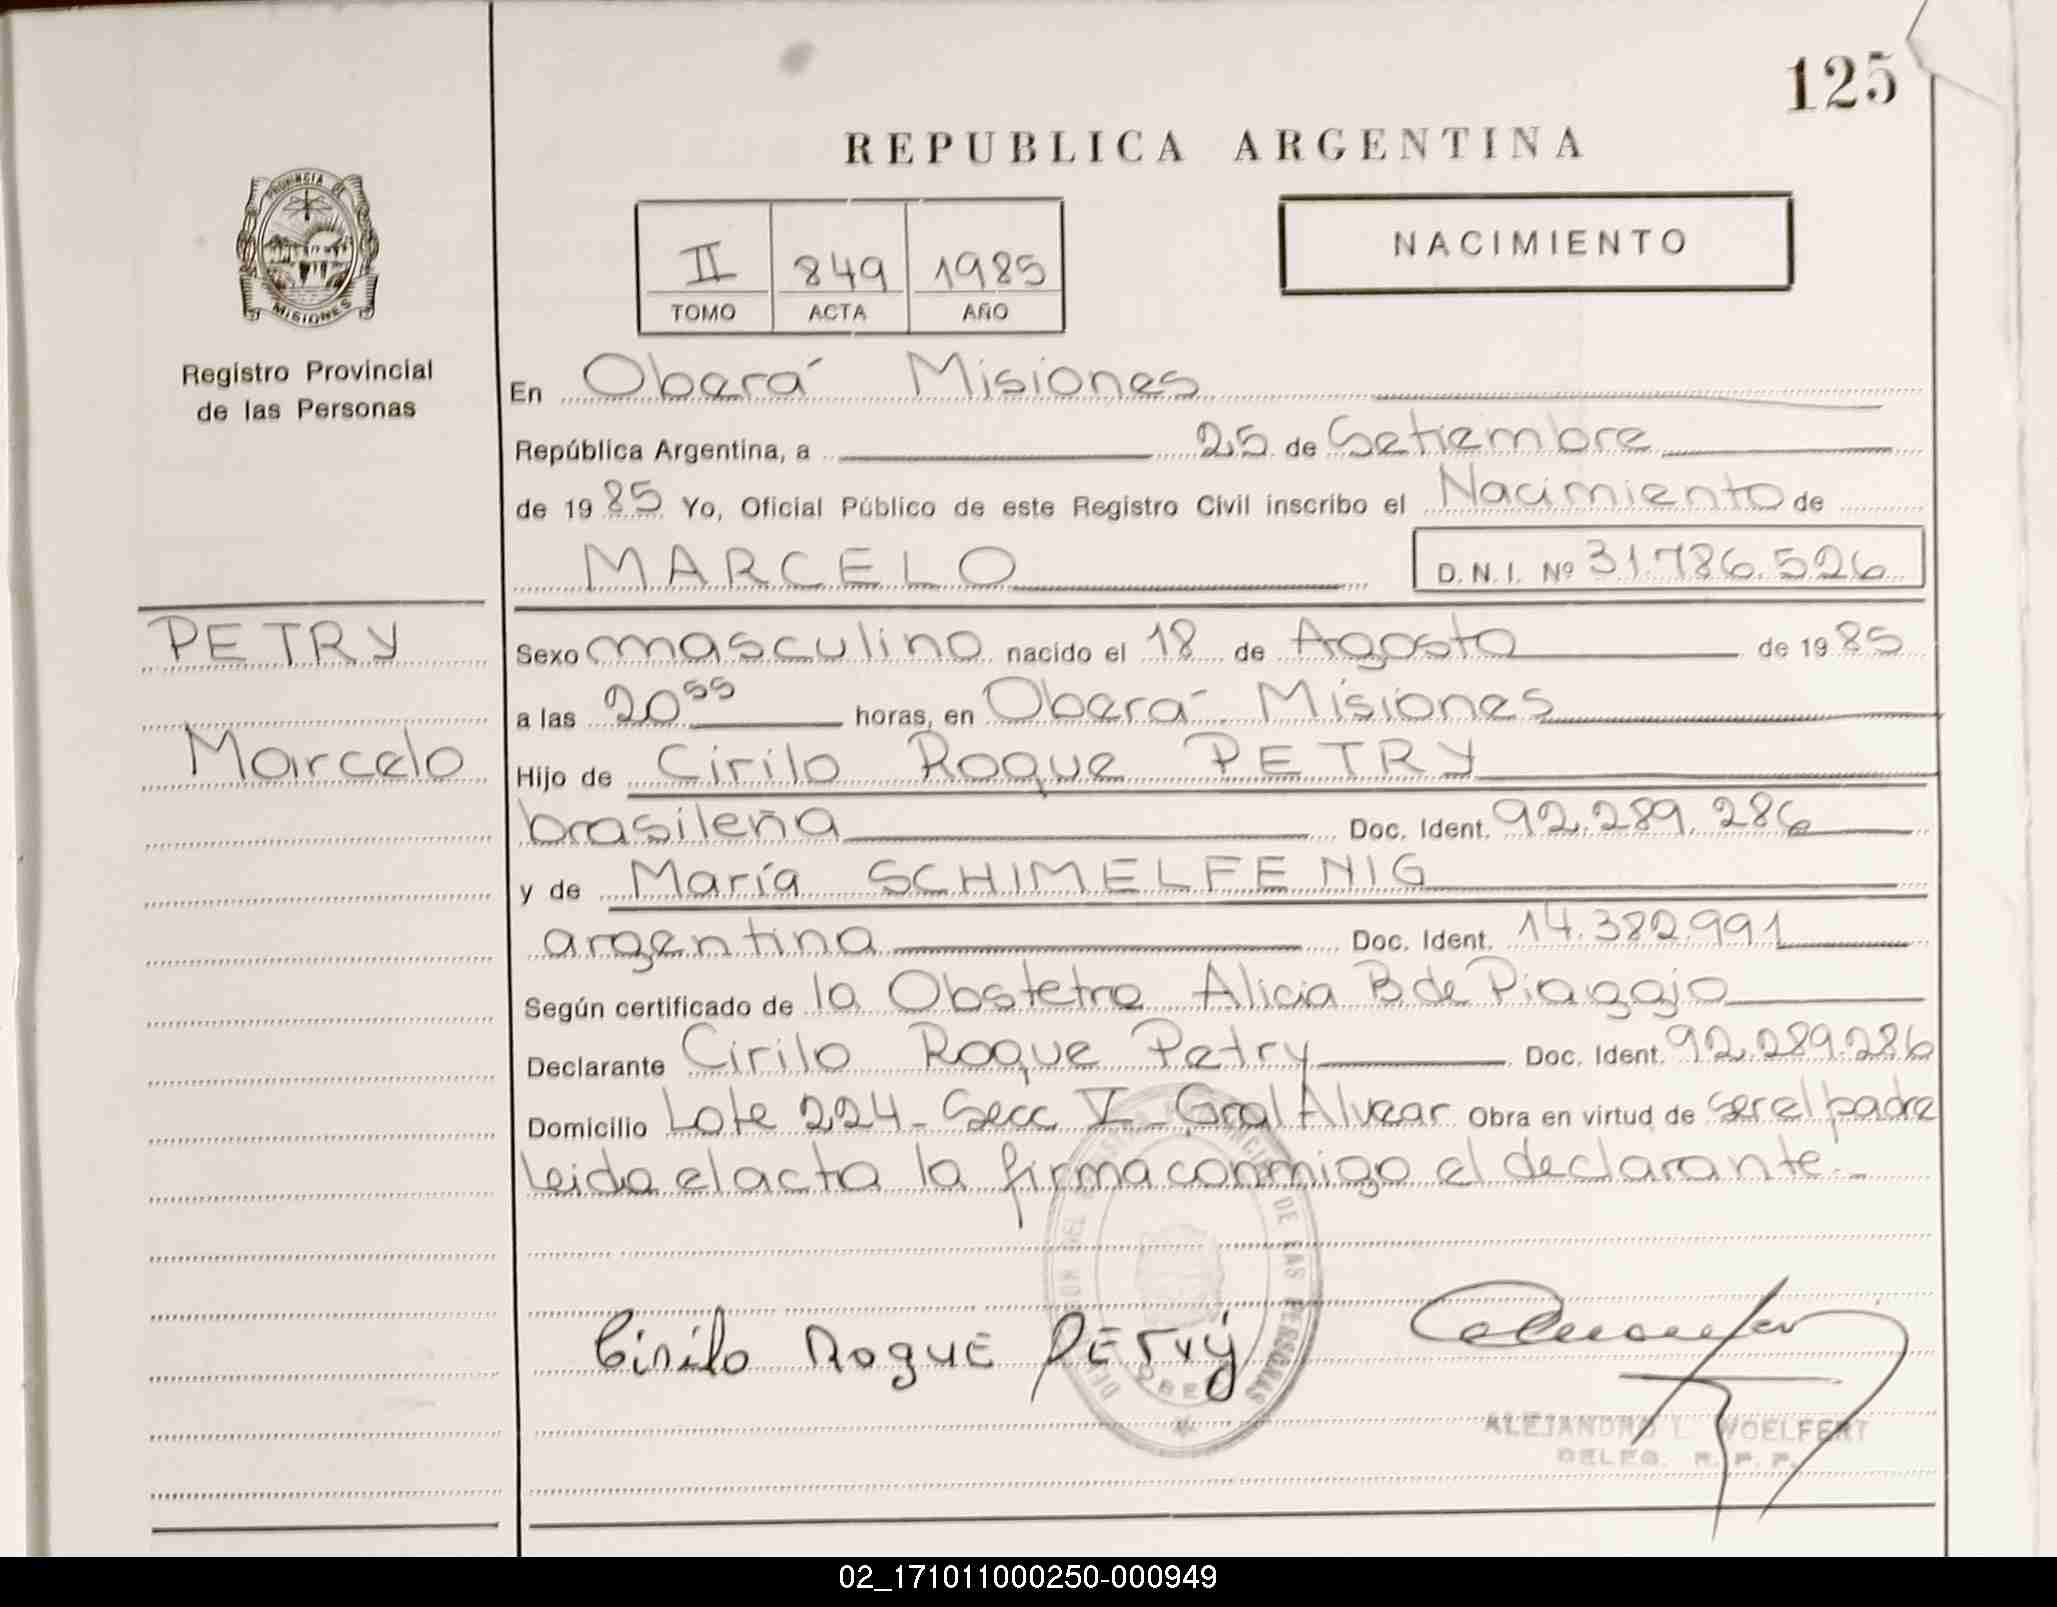 125
REPUBLICA ARGENTINA
PROVINCIA DE
MISIONES
II 849 1985
TOMO ACTA AÑO
NACIMIENTO
Registro Provincial
de las Personas
En Oberá Misiones
República Argentina, a 25 de Setiembre
de 1985 Yo, Oficial Público de este Registro Civil inscribo el Nacimiento de
MARCELO D.N.I. Nº 31.786.526
PETRY
Marcelo
Sexo masculino nacido el 18 de Agosto de 1985
a las 20⁵⁵ horas, en Oberá Misiones
Hijo de Cirilo Roque PETRY
brasileña Doc. Ident. 92.289.286
y de María SCHIMELFENIG
argentina Doc. Ident. 14.382.991
Según certificado de la Obstetra Alicia B de
Declarante Cirilo Roque Petry Doc. Ident. 92.289.286
Domicilio Lote 224 - Secc V - Gral Alvear Obra en virtud de ser el padre
Leida el acta la firma conmigo el declarante.-
Cirilo Roque PETRY
DE LAS PERSONAS
ALEJANDRO L. WOELFERT
DELEG. R. P. P.
02_171011000250-000949